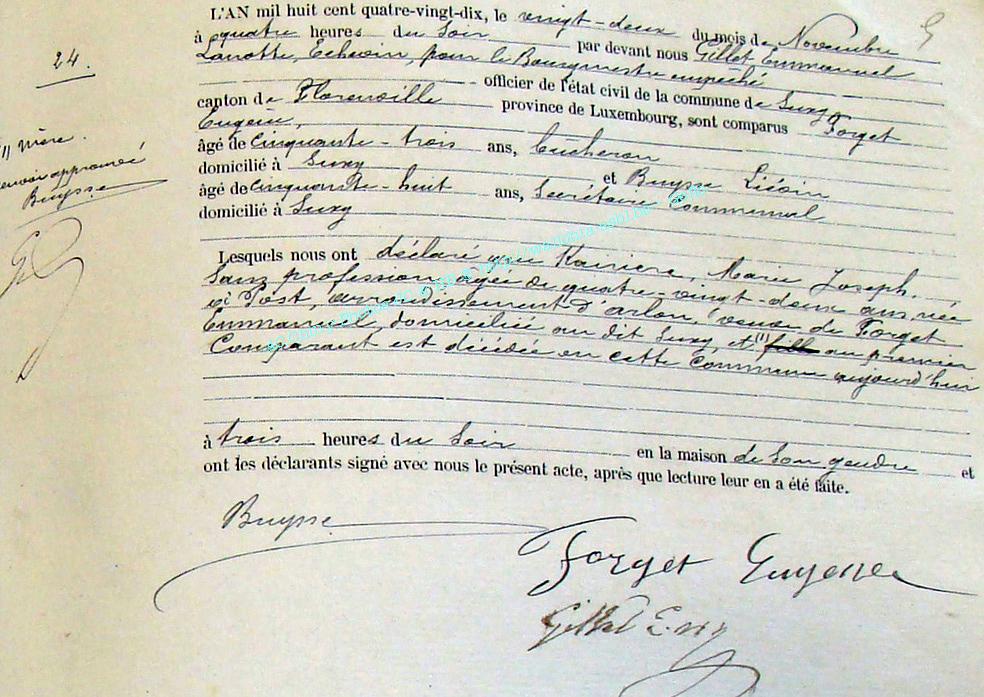 L'AN mil huit cent quatre-vingt-dix, le vingt-deux du mois de Novembre
à quatre heures du Soir par devant nous Gillet Emmanuel
Lanotte, Echevin, pour le Bourgmestre empêché
officier de l'état civil de la commune de Suxy
canton de Florenville province de Luxembourg, sont comparus Forget
Eugène,
âgé de Cinquante-trois ans, bucheron
domicilié à Suxy et Buysse Liévin
âgé de cinquante-huit ans, Secrétaire Communal
domicilié à Suxy
Lesquels nous ont déclaré que Marie Joseph,
Sans profession, agée de quatre-vingt-deux ans, née
à Post, arrondissement d'arlon, veuve de Forget
Emmanuel, domiciliée au dit Suxy, et "/ fille au premier
Comparant est décédée en cette Commune aujourd'hui
à trois heures du Soir en la maison de Son gendre et
ont les déclarants signé avec nous le présent acte, après que lecture leur en a été faite.
24.
"/ mère.
renvoi approuvé
Buysse
Buysse
Forget Eugene
Gillet Em